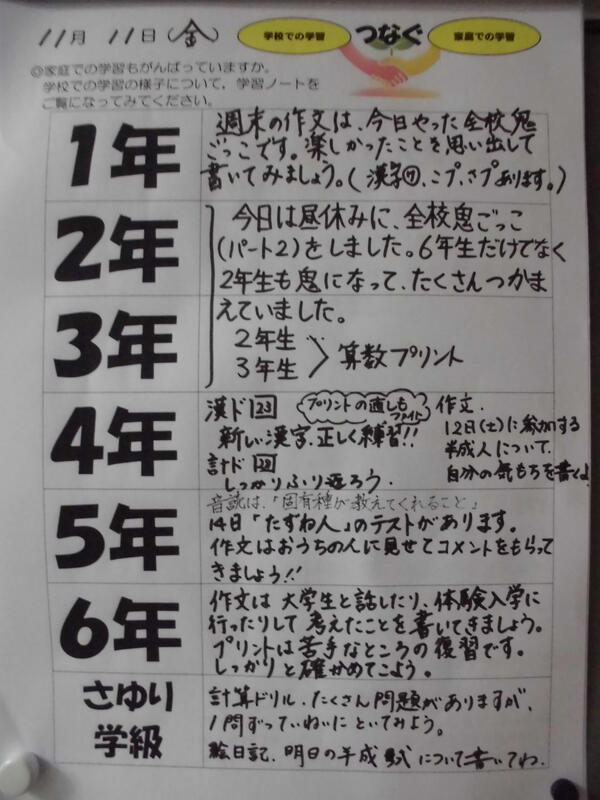 11月 11日（金）
学校での学習 つなぐ 家庭での学習
◎家庭での学習もがんばっていますか。
学校での学習の様子について、学習ノートを
ご覧になってみてください。
1年
週末の作文は、今日やった全校鬼
ごっこです。楽しかったことを思い出して
書いてみましょう。(漢字㋕、こプ、さプあります。)
2年
今日は昼休みに、全校鬼ごっこ
(パート2)をしました。6年生だけでなく
2年生も鬼になって、たくさんつかま
えていました。
3年
2年生
3年生 〉算数プリント
4年
漢ド 23 プリントの直しもファイト
新しい漢字、正しく練習!!
計ド 22
しっかりふり返ろう。
作文.
12日(土)に参加する
半成人について、
自分の気もちを書くよ
5年
音読は、「固有種が教えてくれること」
14日「たずね人」のテストがあります。
作文はおうちの人に見せてコメントをもらって
きましょう!!
6年
作文は大学生と話したり、体験入学に
行ったりして考えたことを書いてきましょう。
プリントは苦手なところの復習です。
しっかりと確かめてこよう。
さゆり
学級
計算ドリル.たくさん問題がありますが、
1問ずつていねいにといてみよう。
絵日記、明日の半成 式について書いてね.